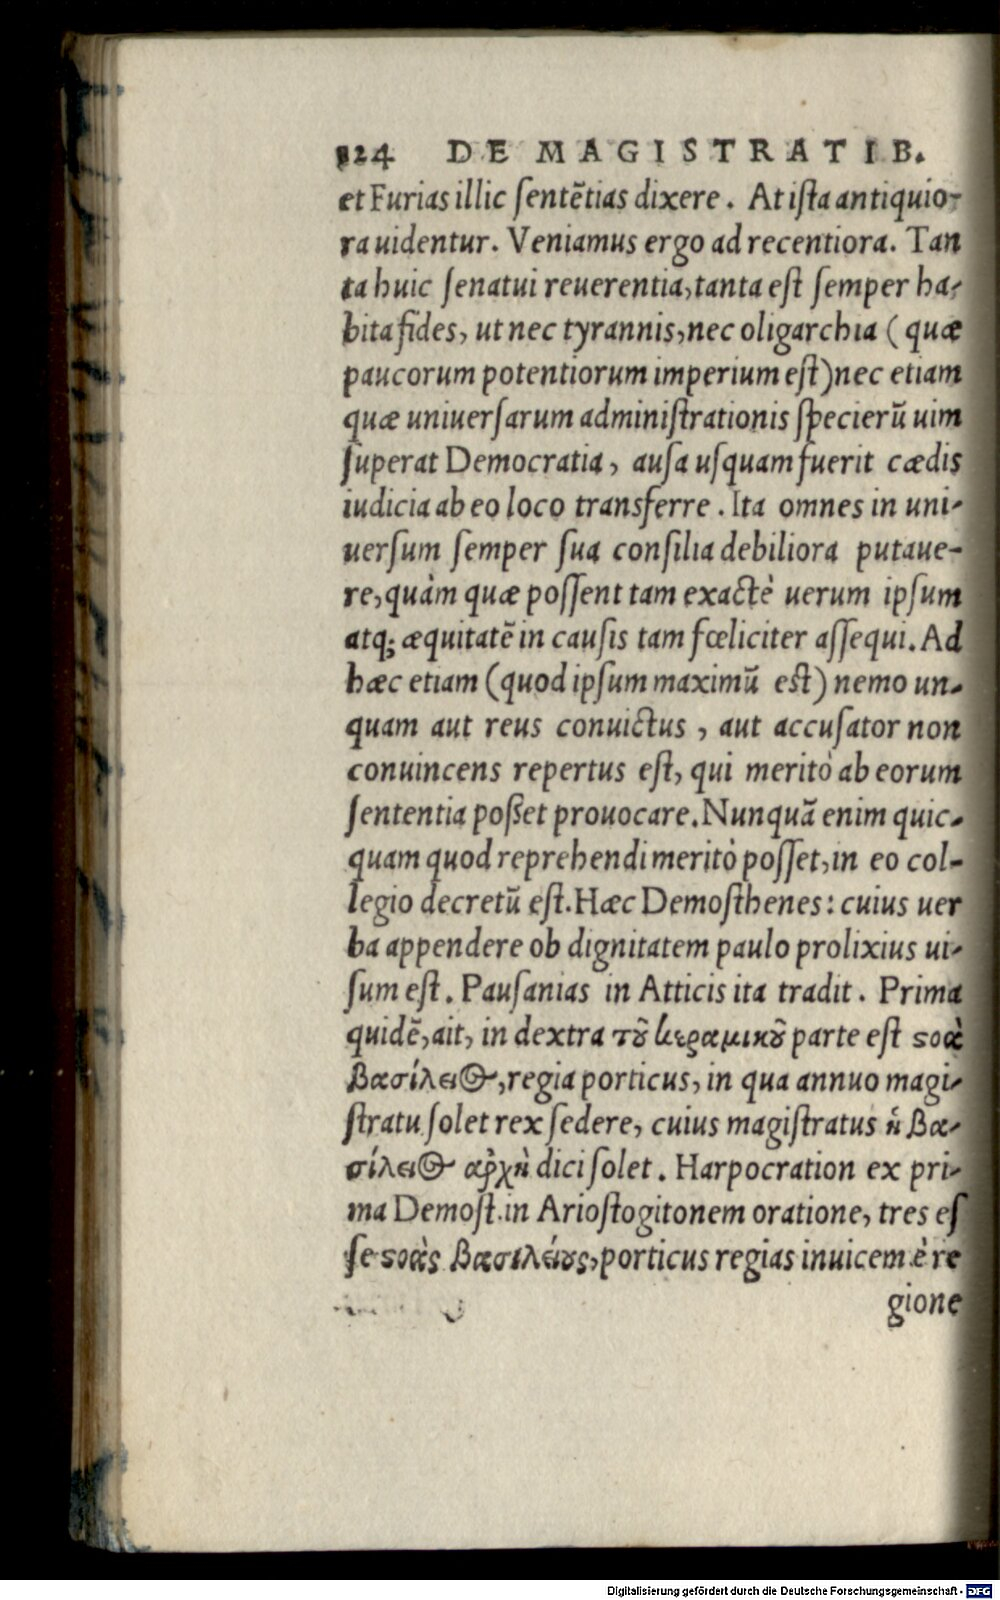 124 DE MAGISTRATIB.
et Furias illic ſentẽtias dixere. At iſta antiquio-
ra uidentur. Veniamus ergo ad recentiora. Tan
ta huic ſenatui reuerentia, tanta eſt ſemper ha-
bita fides, ut nec tyrannis, nec oligarchia (quæ
paucorum potentiorum imperium eſt) nec etiam
quæ uniuerſarum adminiſtrationis ſpecierũ uim
ſuperat Democratia, auſa uſquam fuerit cædis
iudicia ab eo loco transferre. Ita omnes in uni-
uerſum ſemper ſua conſilia debiliora putaue-
re, quàm quæ poſſent tam exactè uerum ipſum
atq; æquitatẽ in cauſis tam fœliciter aſſequi. Ad
hæc etiam (quod ipſum maximũ est) nemo un-
quam aut reus conuictus, aut accuſator non
conuincens repertus eſt, qui meritò ab eorum
ſententia poßet prouocare. Nunquã enim quic-
quam quod reprehendi meritò poſſet, in eo col-
legio decretũ eſt. Hæc Demoſthenes: cuius uer
ba appendere ob dignitatem paulo prolixius ui-
ſum eſt. Pauſanias in Atticis ita tradit. Prima
quidẽ, ait, in dextra τοῦ κεραμικοῦ parte eſt ϛοὰ
βασίλειος, regia porticus, in qua annuo magi-
ſtratu ſolet rex ſedere, cuius magiſtratus ἡ βα-
σίλειος αρχὴ dici ſolet. Harpocration ex pri-
ma Demoſt. in Arioſtogitonem oratione, tres eſ
ſe ϛοὰς βασιλείους, porticus regias inuicem è re
gione
Digitalisierung gefördert durch die Deutsche Forschungsgemeinschaft - DFG